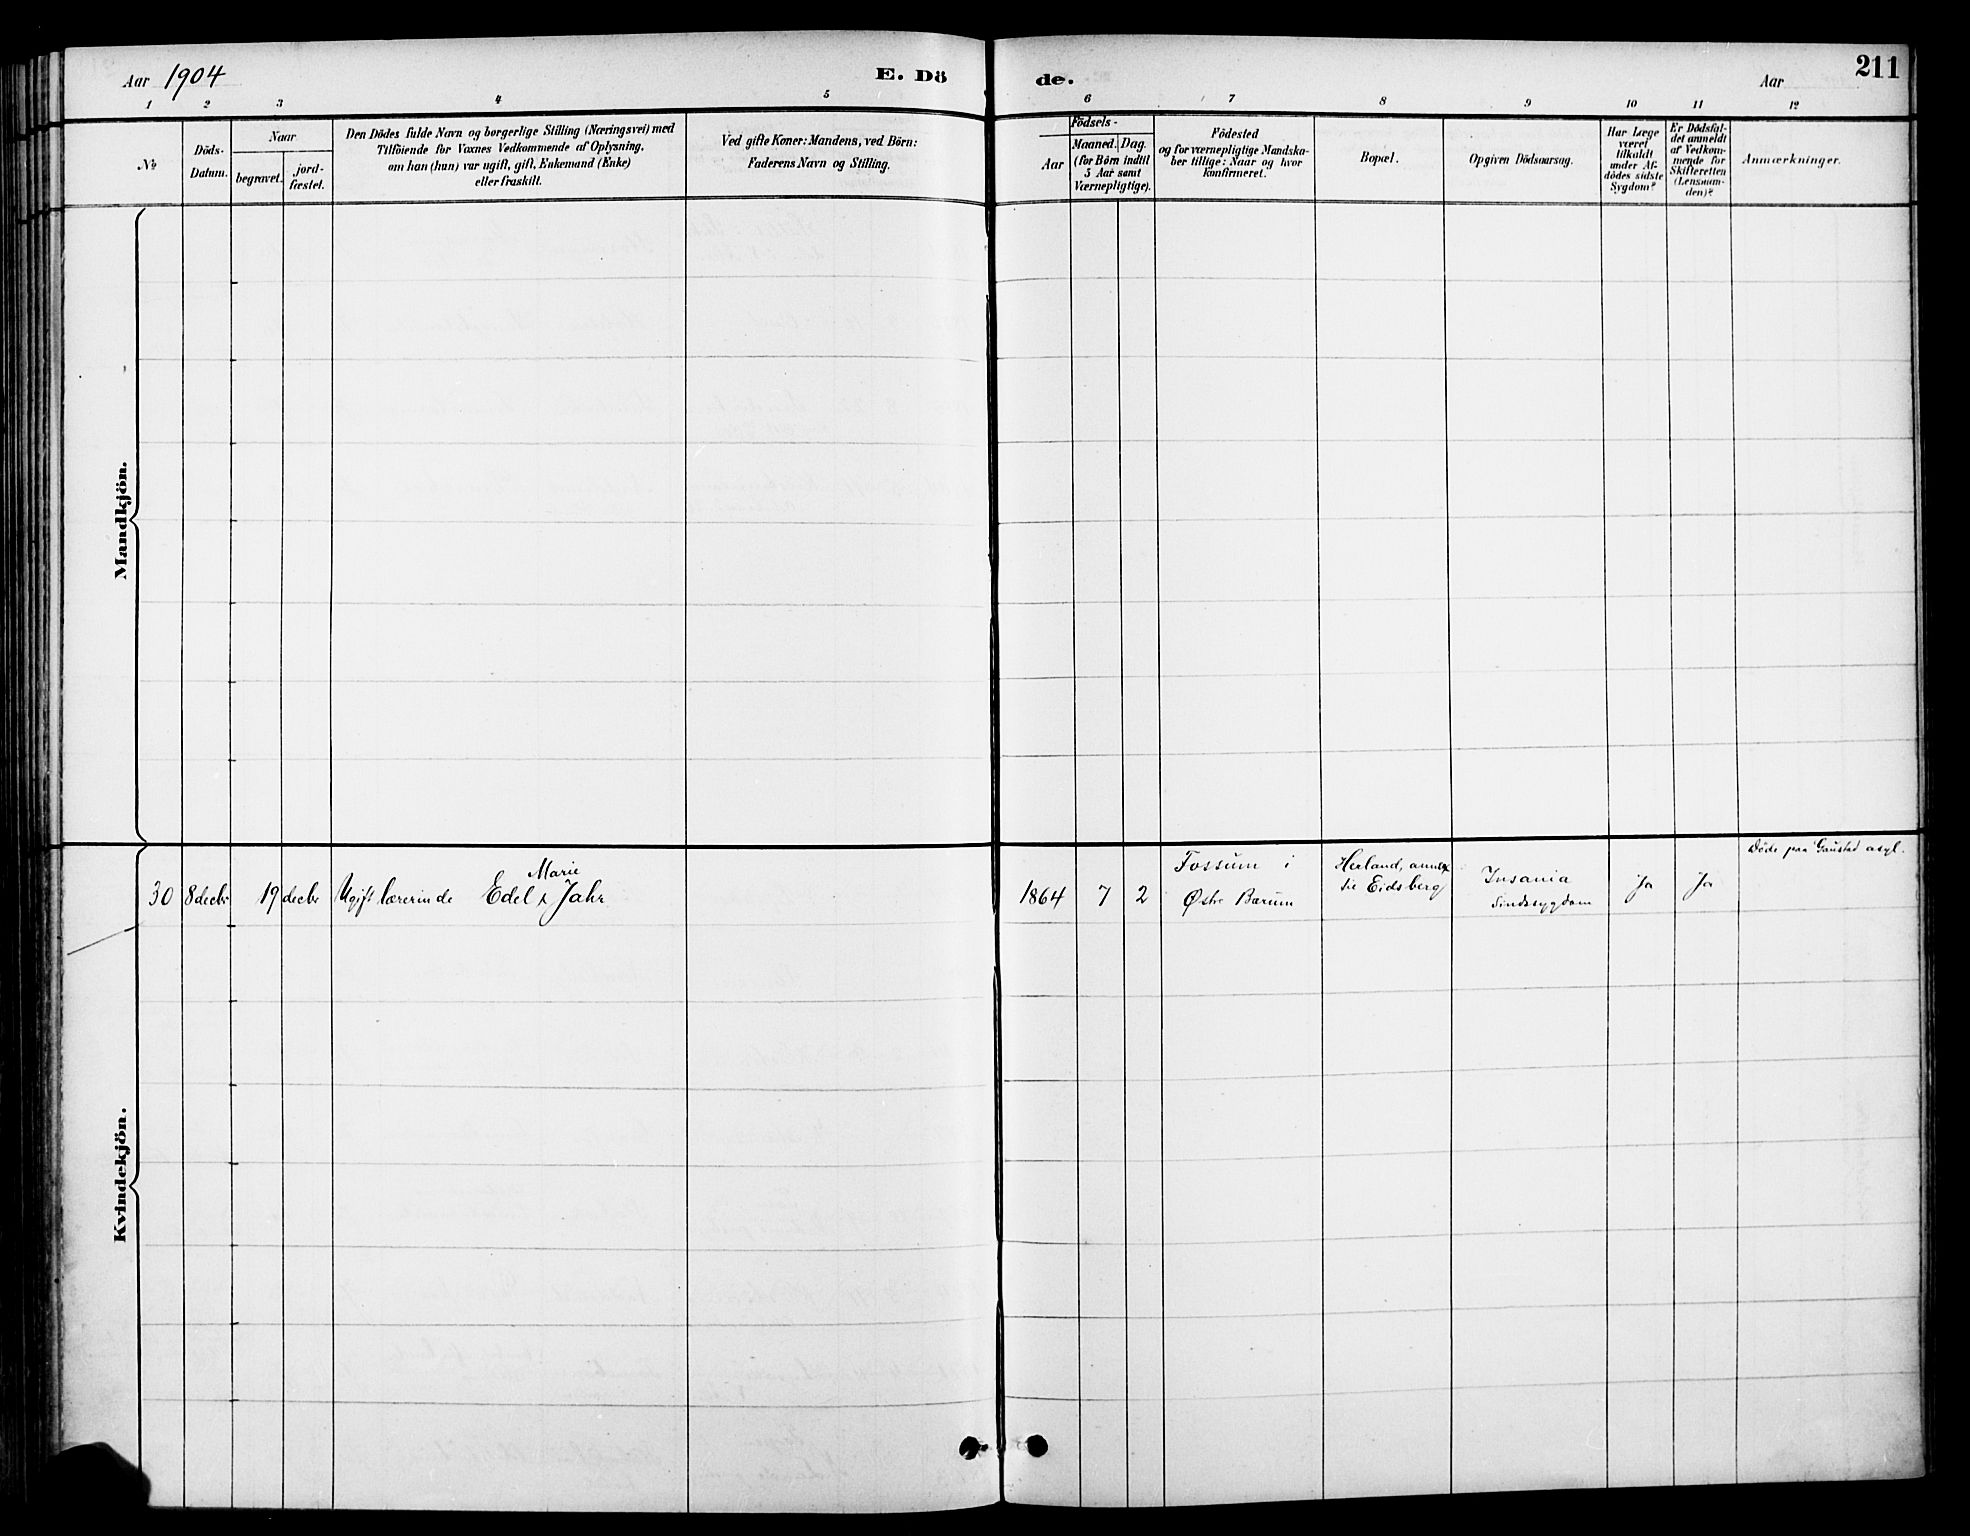 Aar 1904
E. Dö
de.
Aar
211
1 2 3 4 5 6 7 8 9 10 11 12
No
Döds-
Datum.
Naar
begravet.
jord-
fæstet.
Den Dödes fulde Navn og borgerlige Stilling (Næringsvei) med
Tilföiende for Voxnes Vedkommende af Oplysning,
om han (hun) var ugift, gift, Enkemand (Enke)
eller fraskilt.
Ved gifte Koner: Mandens, ved Börn:
Faderens Navn og Stilling.
Födsels-
Aar
Maaned.
Dag.
(for Börn indtil
5 Aar samt
Værnepligtige).
Födested
og for værnepligtige Mandska-
ber tillige: Naar og hvor
konfirmeret.
Bopæl.
Opgiven Dödsaarsag.
Har Læge
været
tilkaldt
under Af-
dödes sidste
Sygdom?
Er Dödsfal-
det anmeldt
af Vedkom-
mende for
Skifteretten
(Lensman-
den)?
Anmærkninger.
Mandkjön.
Kvindekjön.
30 8 decbr 19 decbr Ugift lærerinde Edel Marie Jahr
1864 7 2
Fossum i
Østre Bærum
Herland, annex
til Eidsberg
Insania
Sindssygdom
Ja
Ja
Døde paa Gaustad asyl.